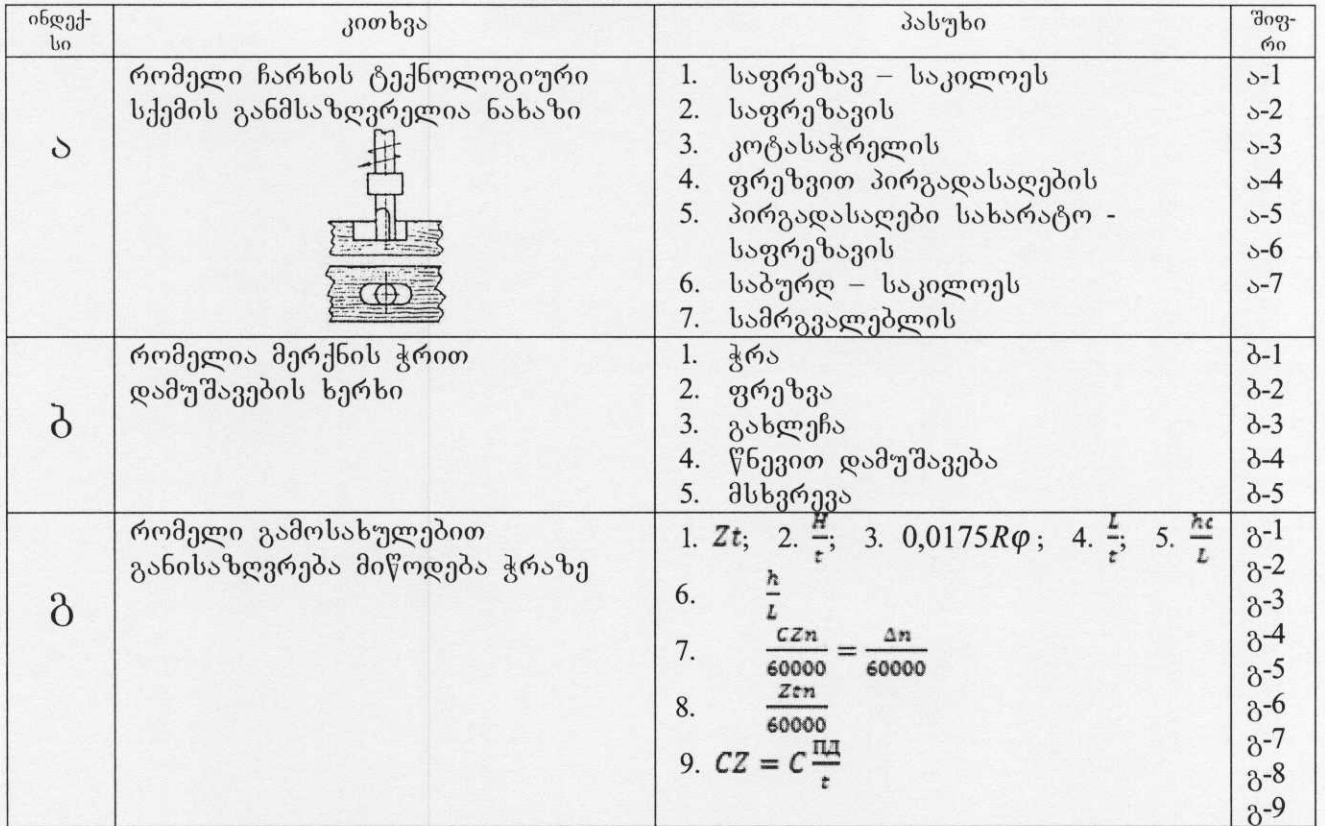 ინდექ-
სი
კითხვა
პასუხი
შიფ-
რი
ა
რომელი ჩარხის ტექნოლოგიური
სქემის განმსაზღვრელია ნახაზი
1. საფრეზავ – საკილოეს
2. საფრეზავის
3. კოტასაჭრელის
4. ფრეზვით პირგადასაღების
5. პირგადასაღები სახარატო -
საფრეზავის
6. საბურღ – საკილოეს
7. სამრგვალებლის
ა-1
ა-2
ა-3
ა-4
ა-5
ა-6
ა-7
ბ
რომელია მერქნის ჭრით
დამუშავების ხერხი
1. ჭრა
2. ფრეზვა
3. გახლეჩა
4. წნევით დამუშავება
5. მსხვრევა
ბ-1
ბ-2
ბ-3
ბ-4
ბ-5
გ
რომელი გამოსახულებით
განისაზღვრება მიწოდება ჭრაზე
1. Zt; 2. H/t; 3. 0,0175Rφ; 4. L/t; 5. hc/L
6. h/L
7. CZn/60000 = Δn/60000
8. Ztn/60000
9. CZ = C ПД/t
გ-1
გ-2
გ-3
გ-4
გ-5
გ-6
გ-7
გ-8
გ-9